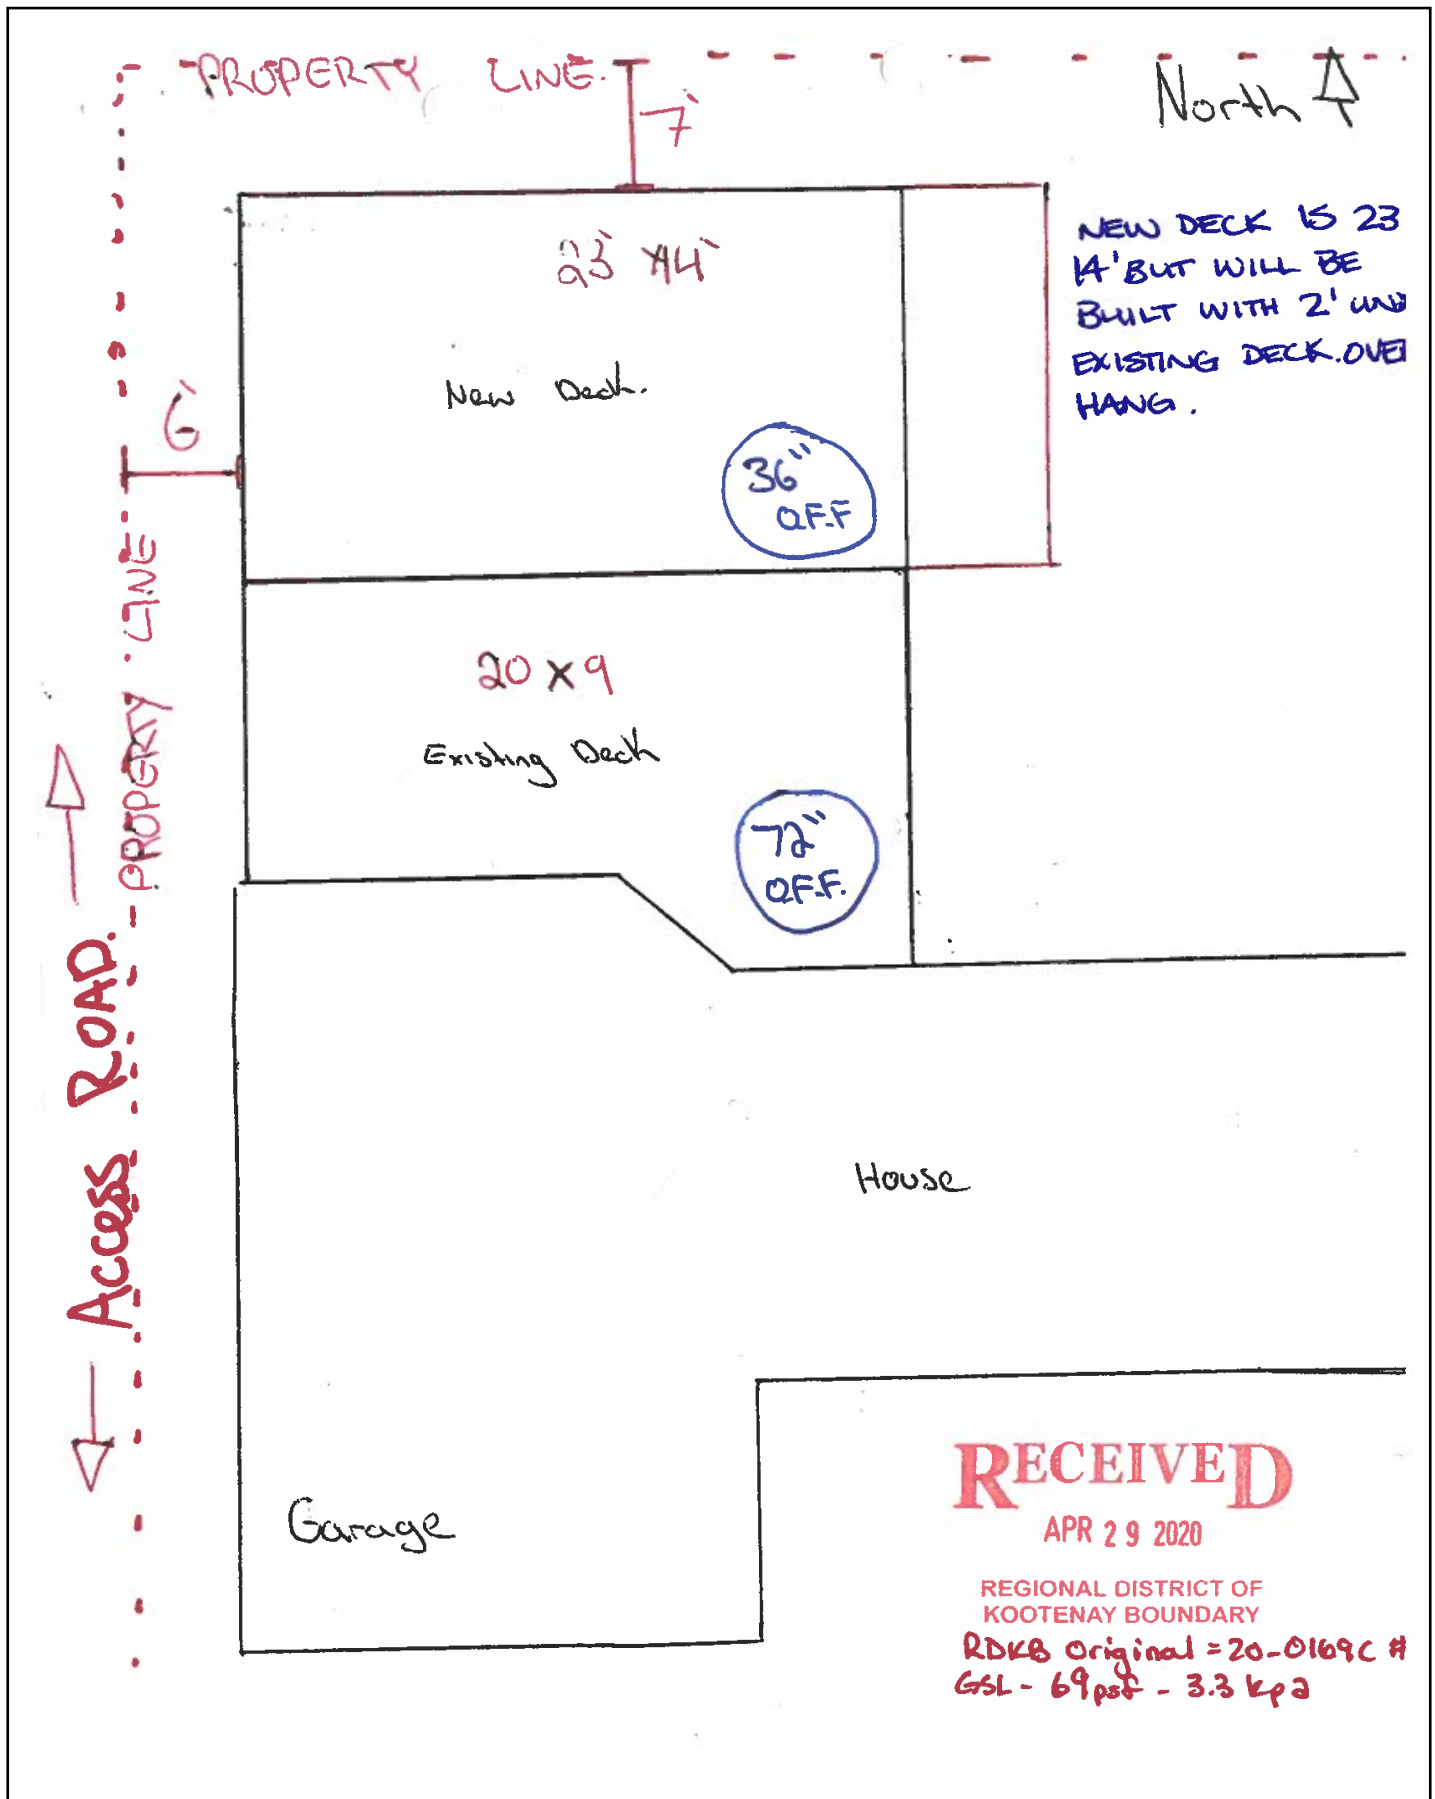 PROPERTY LINE.
7'
North
23' X14'
NEW DECK IS 23
14' BUT WILL BE
BUILT WITH 2' UND
EXISTING DECK. OVER
HANG.
New Deck.
6'
36"
O.F.F
PROPERTY LINE
20 X 9
Existing Deck
72"
O.F.F.
Access ROAD.
House
Garage
RECEIVED
APR 29 2020
REGIONAL DISTRICT OF
KOOTENAY BOUNDARY
RDKB Original = 20-0169C #
GSL - 69psf - 3.3 kpa